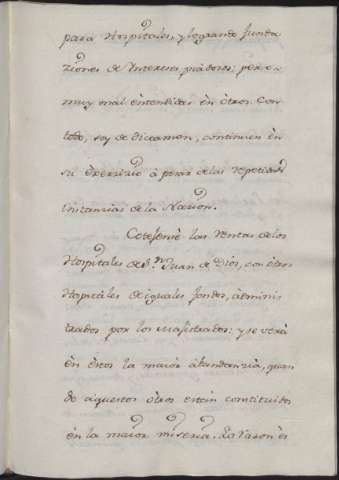 para Hospitales, y logrando funda
ziones de Yntereses piadosos; pero
muy mal entendidas en otros. Con
todo, soy de dictamen, continuen en
su exercizio á pesar de las repetidas
instanzias de la Nazion.
Cotejense las rentas de los
Hospitales de Sn. Juan de Dios, con otros
Hospitales de iguales fondos, adminis
trados por los Majistrados: y se verá
en estos la maior abundanzia, quan
do aquellos otros estan constituidos
en la maior miseria. La razon es